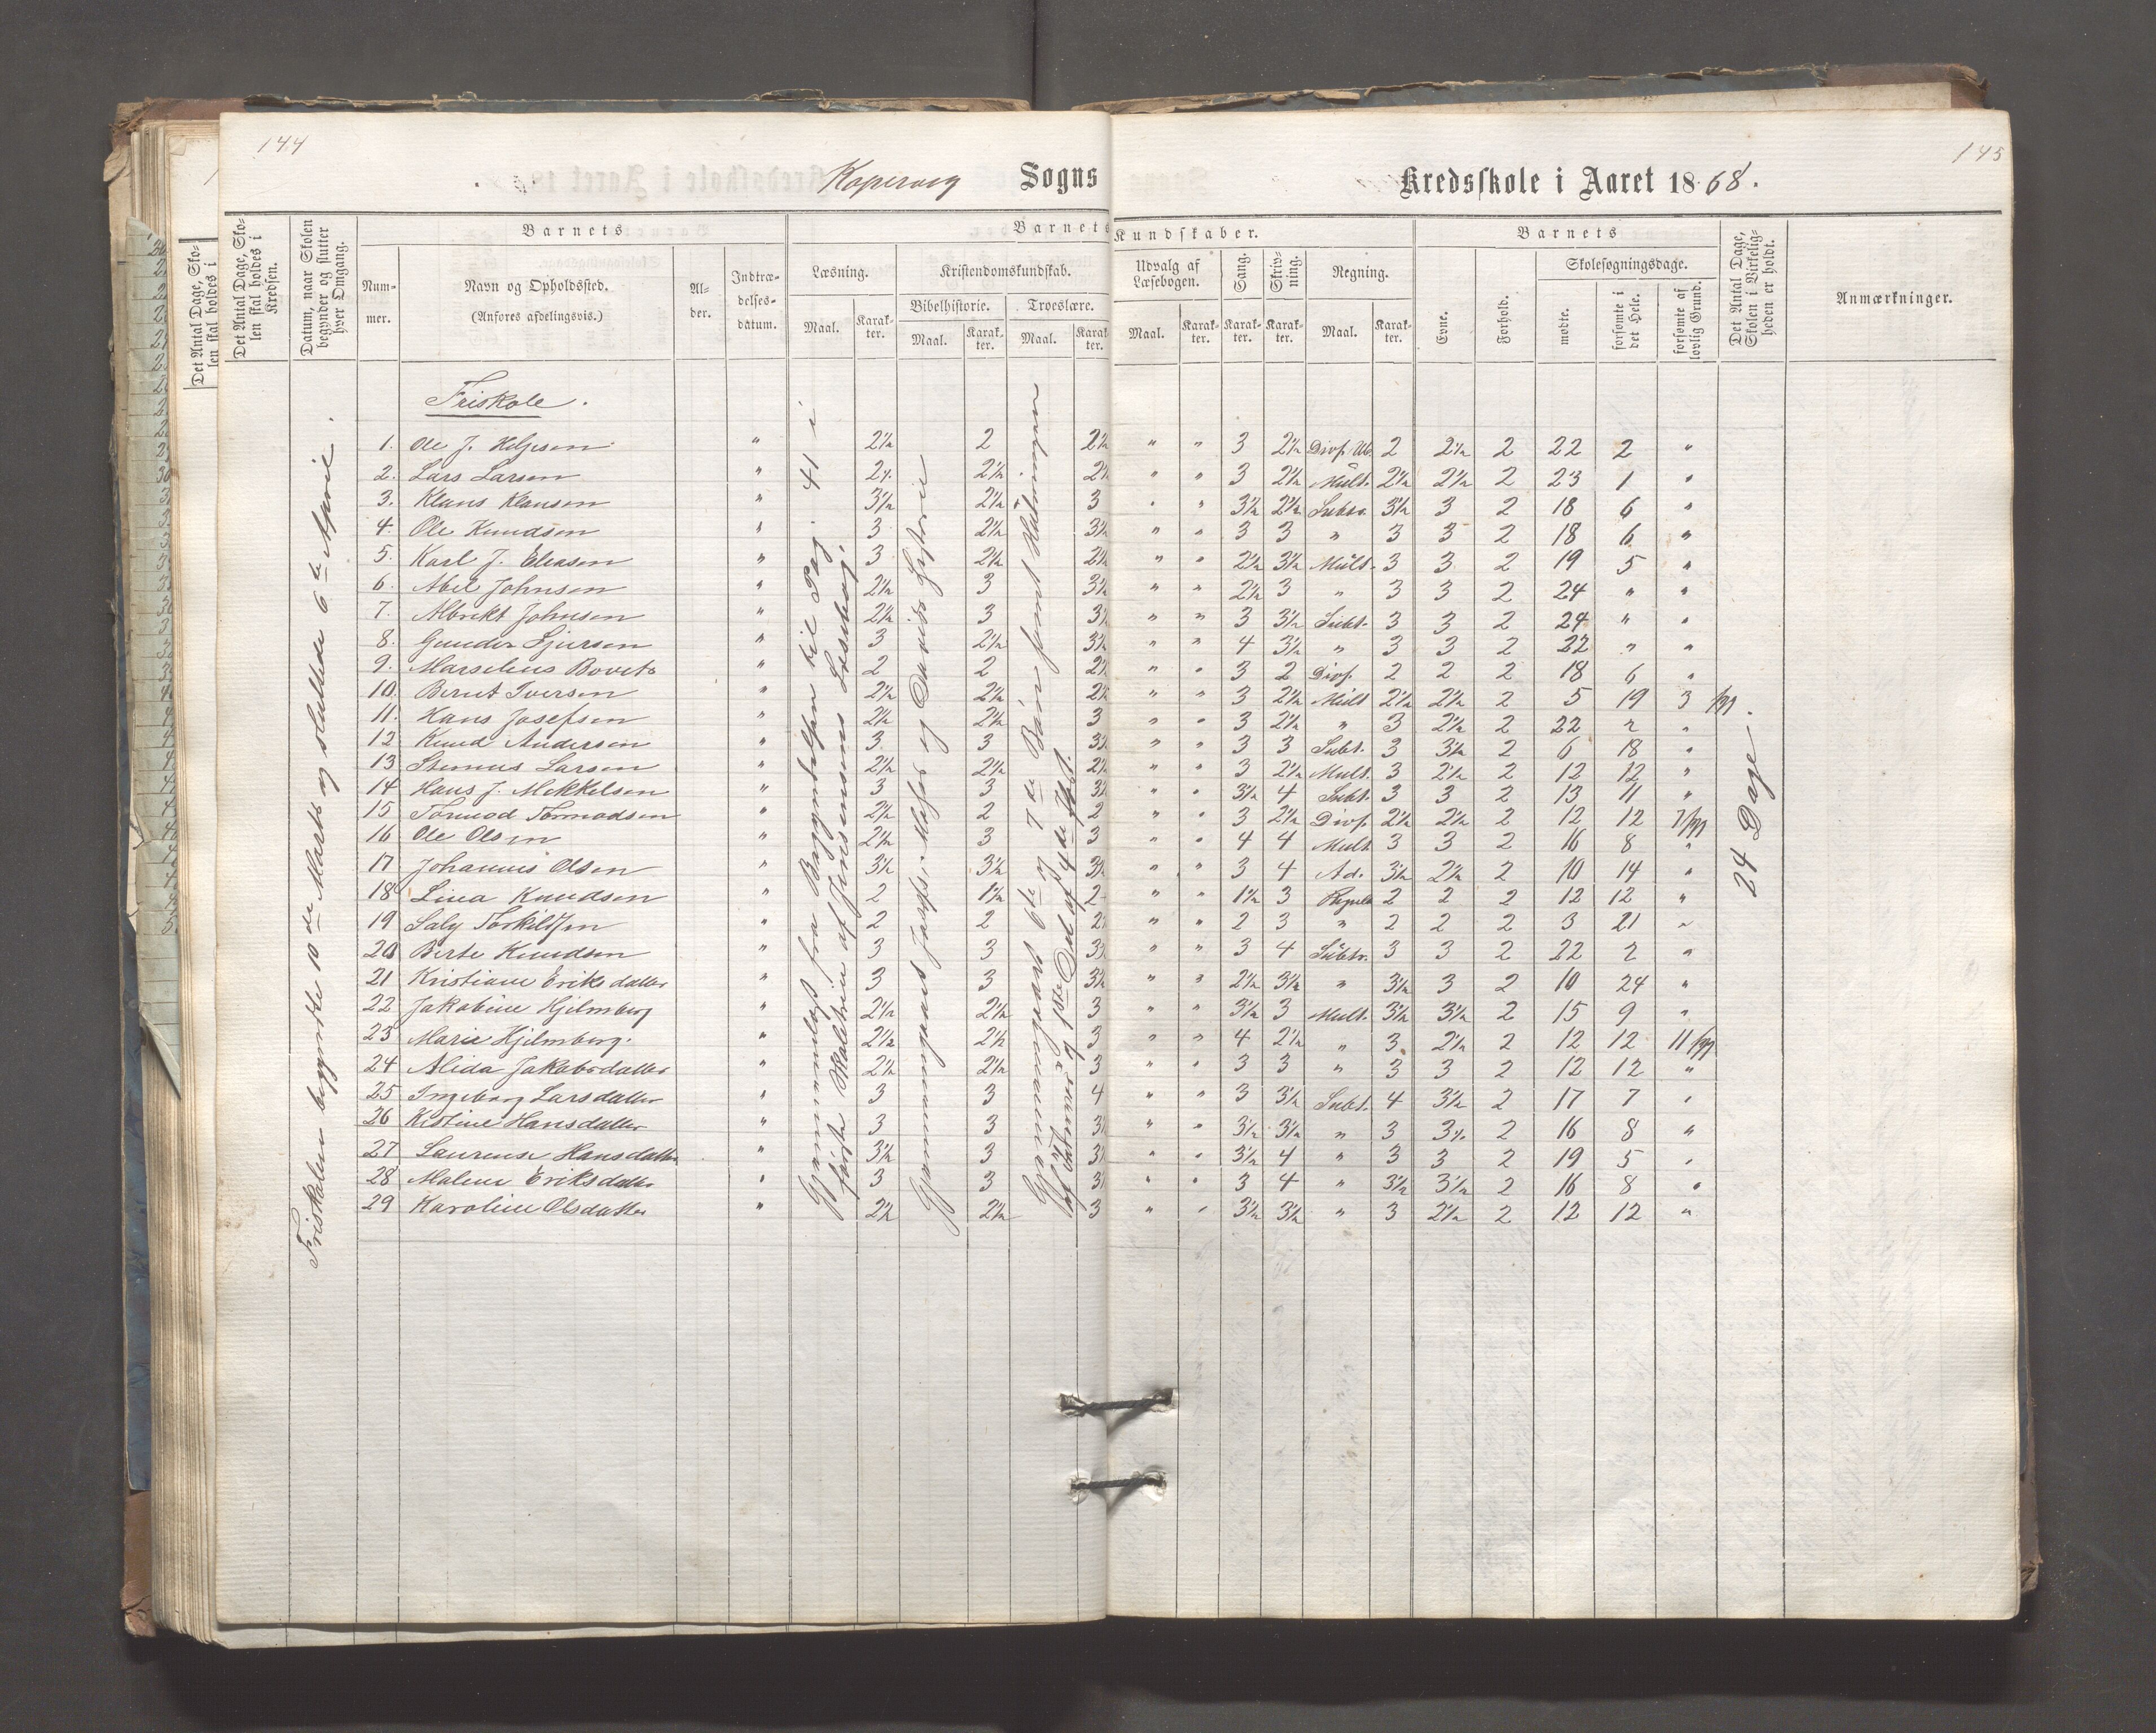 144
145
Kopervig Sogns Kredsskole i Aaret 1868.
Det Antal Dage, Skolen skal holdes i Kredsen.
Det Antal Dage, Skolen skal holdes i Kredsen.
Datum, naar Skolen begynder og slutter hver Omgang.
Barnets
Barnets Kundskaber.
Barnets
Det Antal Dage, Skolen i Virkeligheden er holdt.
Anmærkninger.
Nummer.
Navn og Opholdssted.
(Anføres afdelingsvis.)
Alder.
Indtrædelsesdatum.
Læsning.
Kristendomskundskab.
Bibelhistorie.
Troeslære.
Udvalg af Læsebogen.
Sang.
Skrivning.
Regning.
Evne.
Forhold.
Skolesøgningsdage.
mødte.
forsømte i det Hele.
forsømte af lovlig Grund.
Maal. Karakter. Maal. Karakter. Maal. Karakter. Maal. Karakter. Karakter. Karakter. Maal. Karakter.
Friskolen begyndte 10de Marts og sluttede 6te April.
Friskole.
1. Ole J. Helgesen " 2½ 2 2½ " " 3 2½ 2 2½ 2 22 2 "
2. Lars Larsen " 2½ 2½ " " 3 2½ Mult. 2½ 2½ 2 23 1 "
3. Klaus Klausen " 3½ 2½ 3 " " 3½ 2½ Subtr. 3½ 3 2 18 6 "
4. Ole Knudsen " 3 2½ 3½ " " 3 3 " 3 3 2 18 6 "
5. Karl J. Eliasen " 3 2½ 2½ " " 2½ 3½ Mult. 3 3 2 19 5 "
6. Abel Johnsen " 2½ 3 3½ " " 2½ 3 " 3 3 2 24 " "
7. Albrekt Johnsen " 2½ 3 3½ " " 3 3½ Subt. 3 3 2 24 " "
8. Gunder Sjursen " 3 2½ 3½ " " 4 3½ " 3 3 2 22 " "
9. Marselius Bovets " 2 2 2½ " " 3 2 Divs. 2 2 2 18 6 "
10. Bernt Iversen " 2½ 2½ 2½ " " 3 2½ Mult 2½ 2½ 2 5 19 3
11. Hans Josefsen " 2½ 2½ 3 " " 3 2½ " 3 2½ 2 22 2 "
12 Knud Andersen " 3 3 3½ " " 3 3 Subt. 3 3½ 2 6 18 "
13 Larsen " 2½ 2½ 2½ " " 3 2½ Mult. 3 2½ 2 12 12 "
14 Hans J. Mikkelsen " 3 3 3½ " " 3½ 4 Subt. 3 3 2 13 11 "
15 Tormod Tormodsen " 2½ 2 2 " " 3 2½ Divs. 2½ 2½ 2 12 12 7
16 Ole Olsen " 2½ 3 3 " " 4 4 Mult 3 3 2 16 8 "
17 Johannes Olsen " 3½ 3½ 3½ " " 3 4 Ad. 3½ 2½ 2 10 14 "
18 Lina Knudsen " 2 1½ 2 " " 1½ 3 2 2 2 12 12 "
19 Saly Torkildsen " 2 2 2½ " " 2 3 " 2 2 2 3 21 "
20 Berte Knudsen " 3 3 3½ " " 3 4 Subtr. 3 3 2 22 2 "
21 Kristiane Eriksdatter " 3 3 3½ " " 2½ 3½ " 3½ 3 2 10 24 "
22 Jakobine Hjelmberg " 2½ 2½ 3 " " 3½ 3 Mult. 3½ 3½ 2 15 9 "
23 Marie Hjelmberg. " 2½ 2½ 3 " " 4 2½ " 3 2½ 2 12 12 11
24 Alida Jakobsdatter " 2½ 2½ 3 " " 3 3 " 3 3 2 12 12 "
25 Ingeborg Larsdatter " 3 3 4 " " 3 3½ Subt. 4 3½ 2 17 7 "
26 Kistine Hansdatter " 3 3 3½ " " 3½ 3½ " 3 3½ 2 16 8 "
27 Laurense Hansdatter 3½ 3 3½ " " 3½ 4 " 3 3 2 19 5 "
28 Malene Eriksdatter " 3 3 3½ " " 3 4 " 3½ 3½ 2 16 8 "
29 Karoline Olsdatter " 2½ 2½ 3 " " 3½ 3½ " 3 2½ 2 12 12 "
Gjennemlæst fra Begyndelsen til Pag. 41 i
første Skoletrin af Jensens Læsebog.
Gjennemgaaet Josefs, Moses og Davids Historie
Gjennemgaaet 6te og 7de Bøn samt Slutningen
af Fadervor og 1ste Del af 4de Part.
24 Dage.